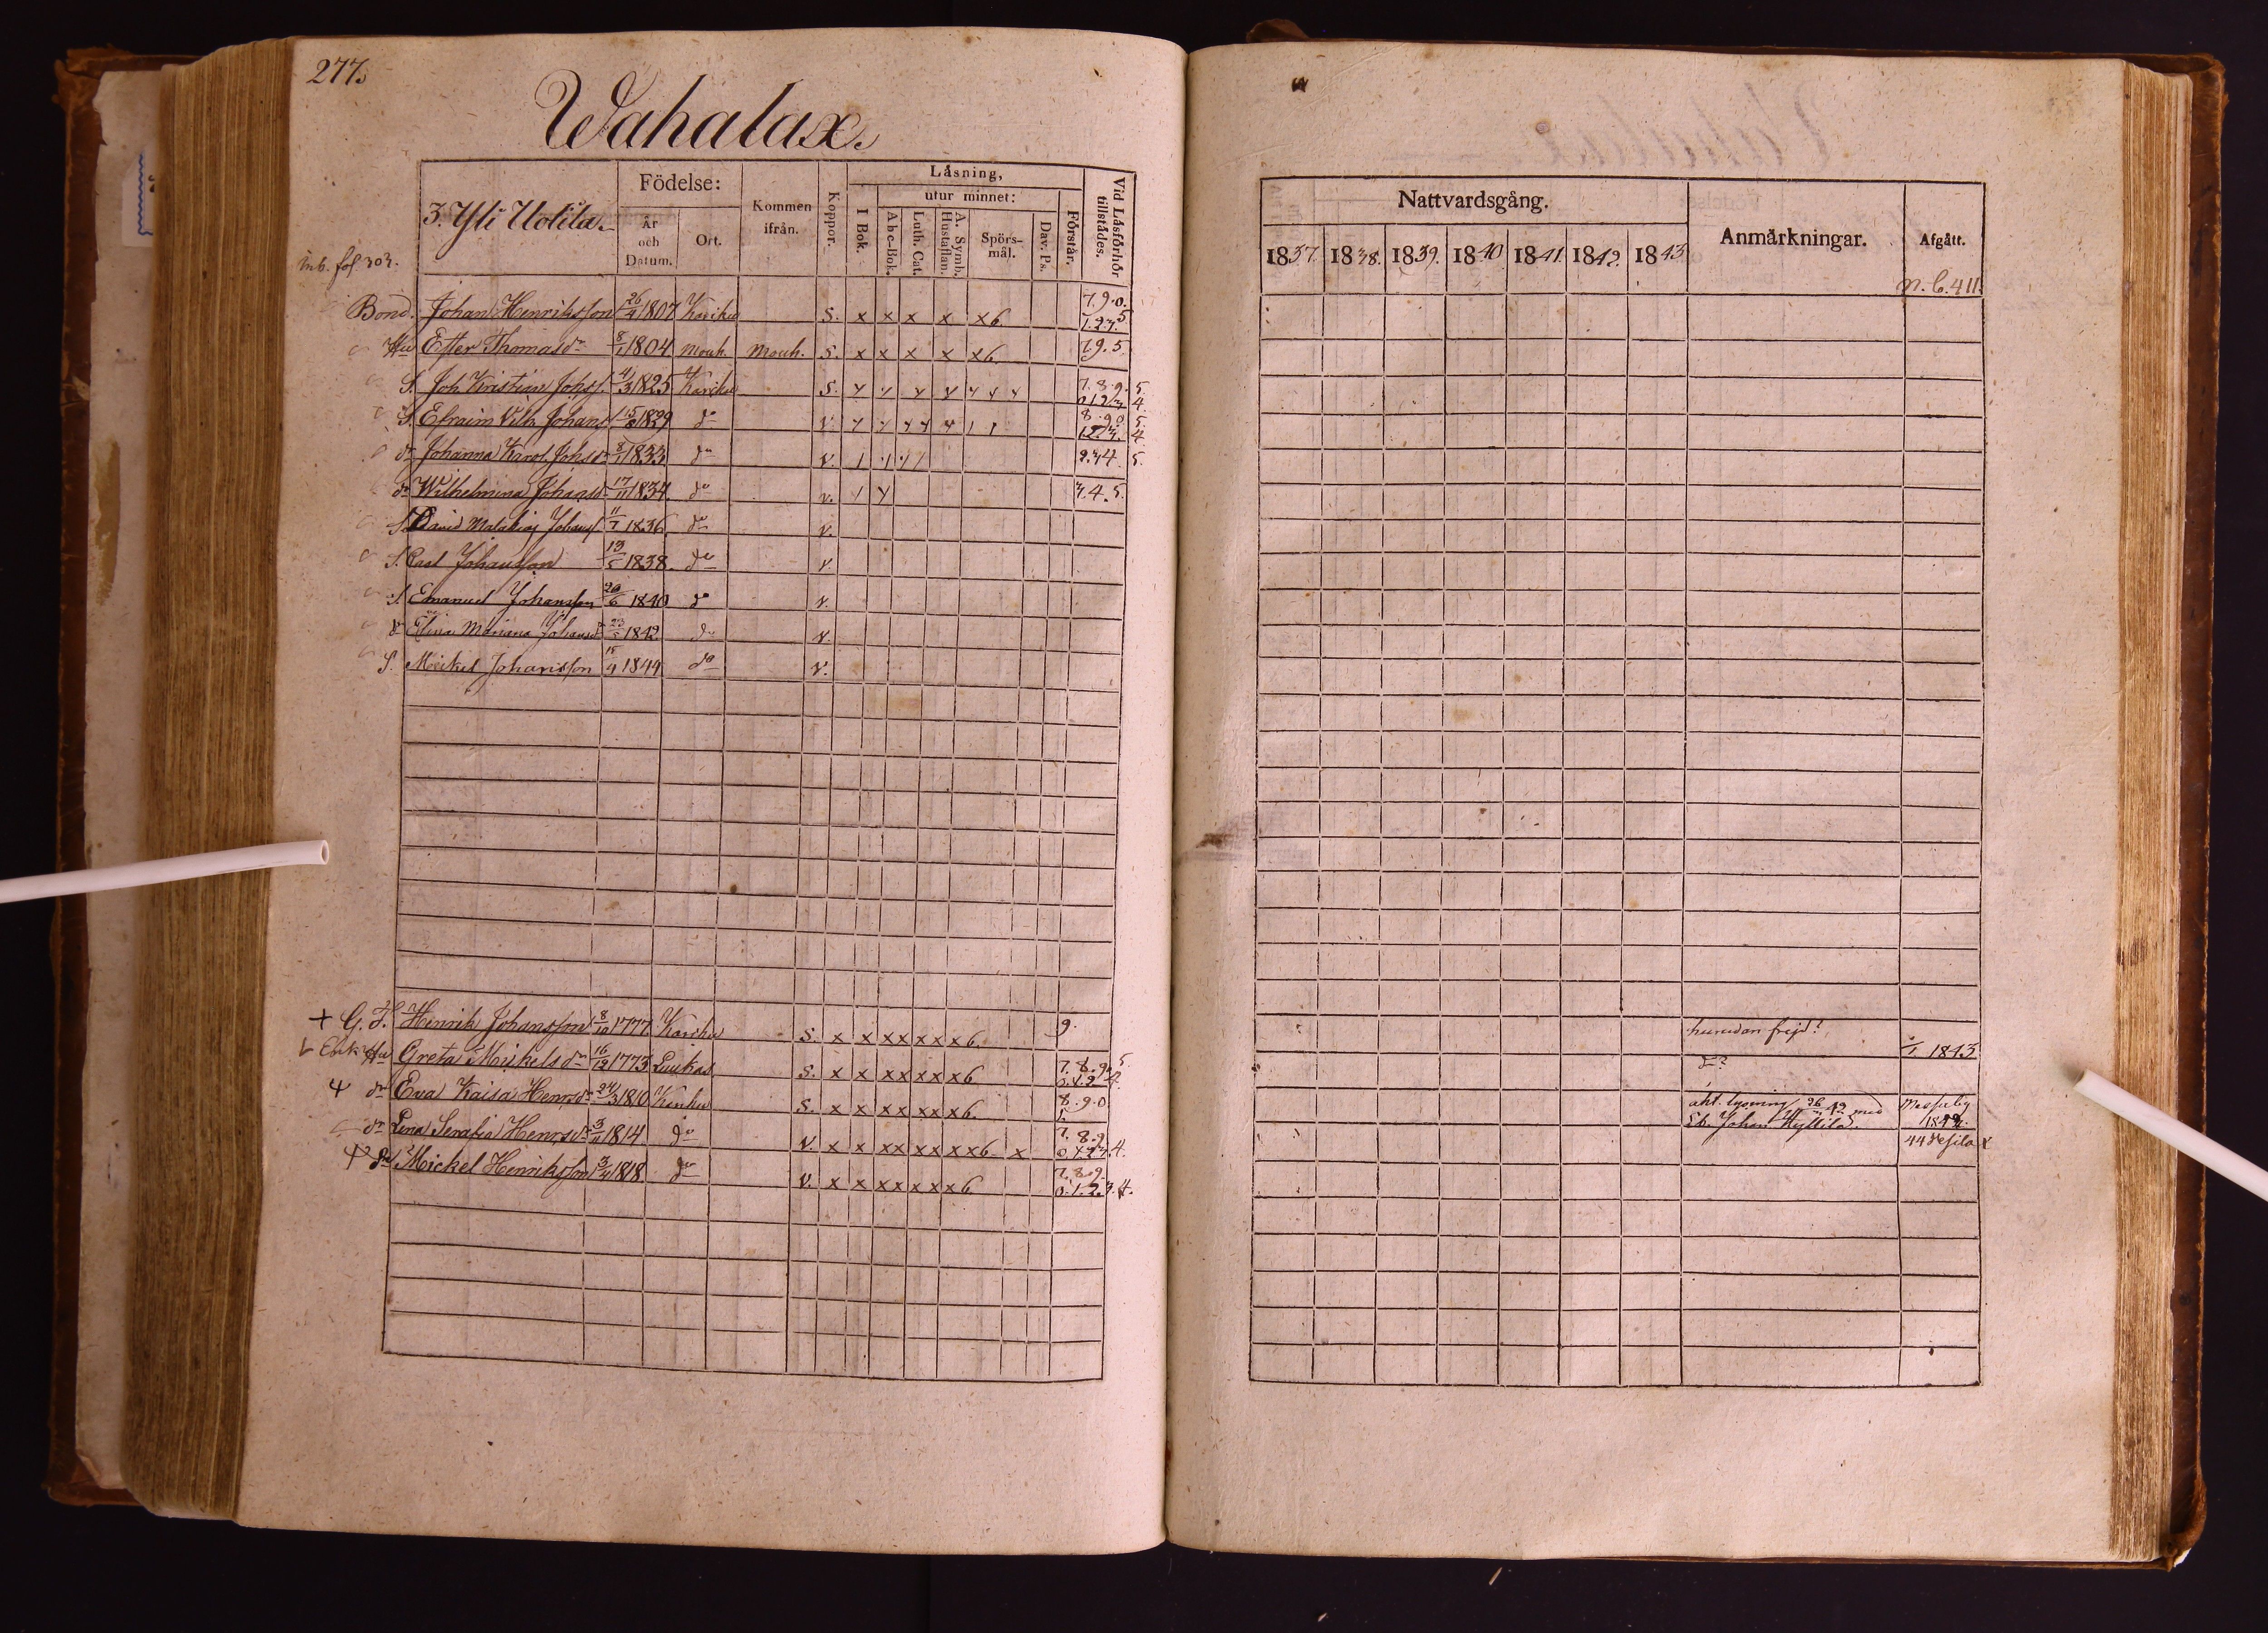 277.
Wahalax.
3. Yli Uotila.
Födelse:
År och Datum.
Ort.
Kommen ifrån.
Koppor.
Läsning,
I Bok.
utur minnet:
Abc-Bok.
Luth. Cat.
A. Symb. Hustaflan.
Spörsmål.
Dav. Ps.
Förstår.
Vid Läsförhör tillstådes.
inb. fol. 303.
Bond. Johan Henriksson 26/4 1807 Karcku S. x x x x x6 7.9.0. 1.2.3. 5
Hu Ester Thomasdr 8/1 1804 Mouh. Mouh. S. x x x x x6 7.9.5.
S. Joh Kristian Johss. 1825 Karcku S. 7.8.9. 5. 0.1.2.3. 4.
S. Efraim Vilh. Johans 1829 do V. 8.9.0 5. 1.2.3. 4.
dr Johanna Karol. Johsdr 1833 do V. 2.3.4. 5.
dr Wilhelmina Johansd 17/11 1834 do v. 3.4.5.
S. David Malakias Johanss 11/7 1836 do V.
S. Carl Johansson 13/5 1838. do V.
S. Emanuel Johansson 29/6 1840 do V.
dr Elina Mariana Johansd 23/5 1842 do V.
S. Mickel Johansson 15/4 1844 do V.
+ G. F. Henrik Johansson 8/10 1777. Karcku S. x x x x x x x6 9.
Enk. Hu Greta Mickelsdr 16/12 1773 Luukas S. x x x x x x x6 7.8.9.
dr Eva Kaisa Henrsdr 24/3 1810 Karcku S. x x x x x x x6 8.9.0 1.
dr Lena Serafia Henrsdr 1814 do V. x x x x x x x x6 x 7.8.9. 4.
Mickel Henriksson 3/4 1818 do V. x x x x x x x6 7.8.9. 0.1.2.3.4.
Nattvardsgång.
1837. 1838. 1839. 1840 1841. 1842. 1843.
Anmärkningar.
Afgått.
n. b. 411.
hurudan frejd?
1843
do?
aht. lysning med
Eb. Johan
Messuby
44